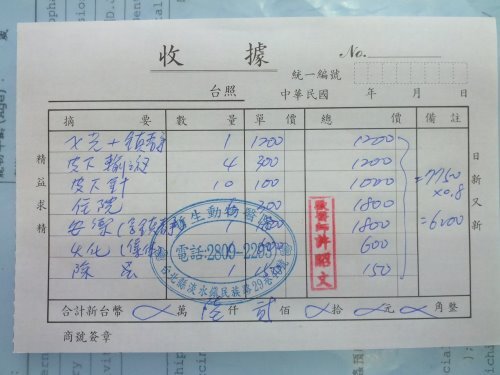 收據
No.
統一編號
台照 中華民國 年 月 日
摘要 數量 單價 總價 備註
X光+鎮靜 1 1200 1200
皮下輸液 4 300 1200
皮下針 10 100 1000
住院 6 300 1800
安樂 1 1800
火化 1 600
除 1 150 150
=7750
×0.8
=6200
精益求精
日新又新
生動物醫
電話:2809-2299
台北縣淡水鎮民族路29巷
獸醫師許昭文
合計新台幣 萬 陸仟 貳佰 拾 元 角整
商號簽章